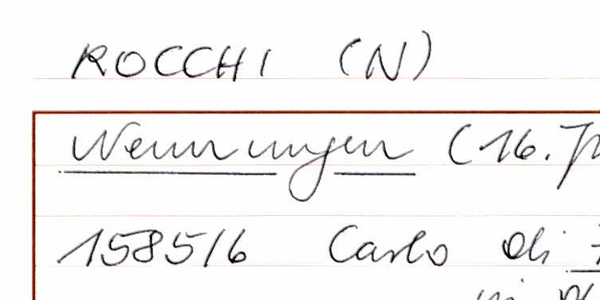 ROCCHI (N)
Nennungen (16.
1585/6 Carlo di